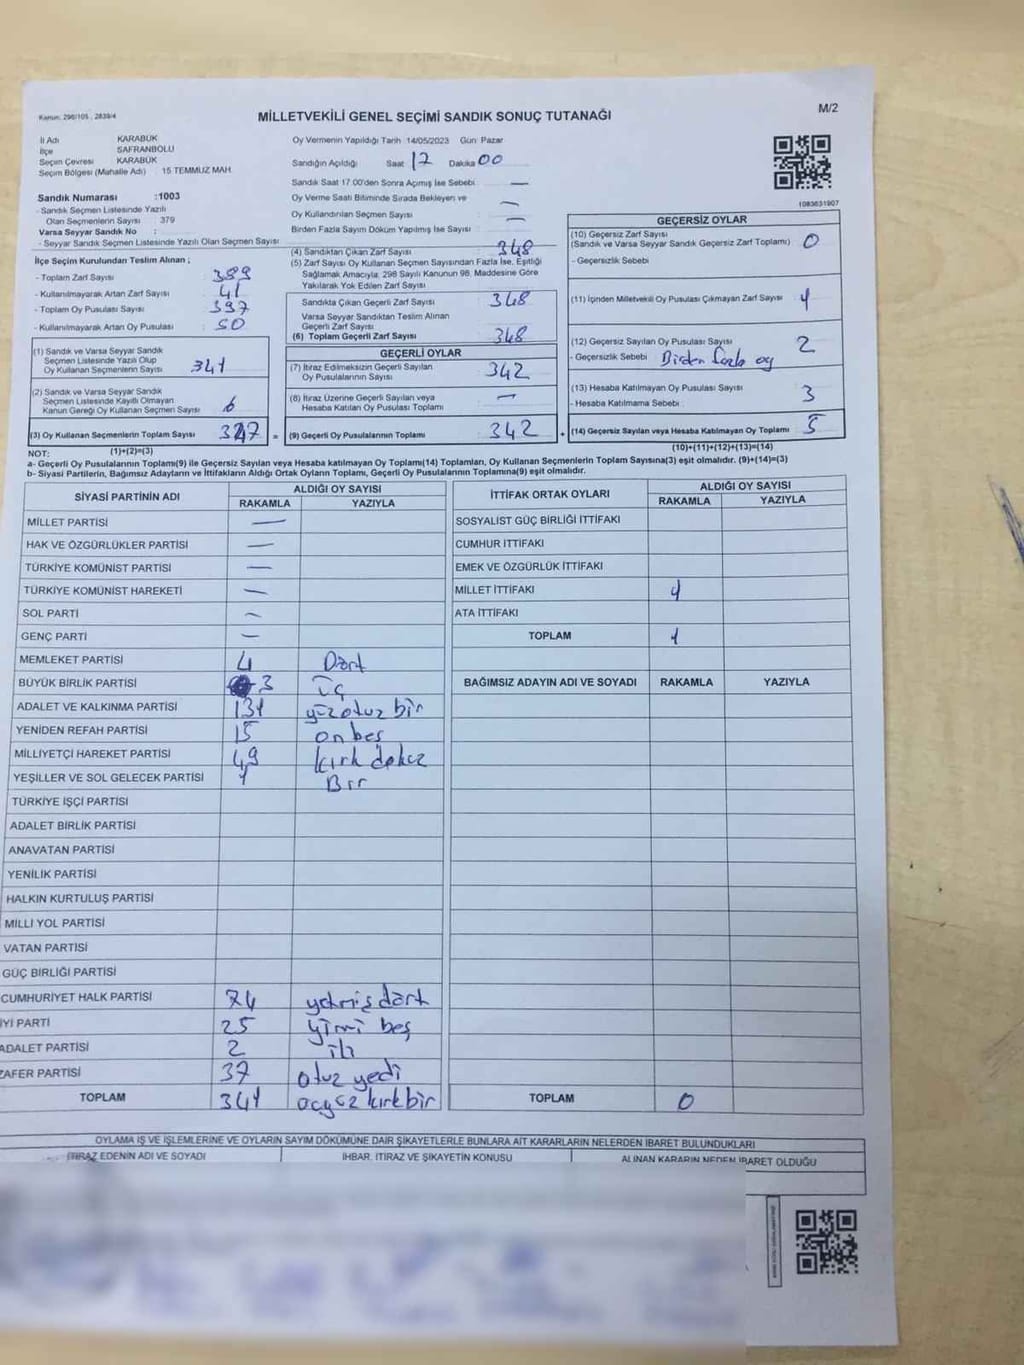 Kanun: 298/105 , 2839/4
MİLLETVEKİLİ GENEL SEÇİMİ SANDIK SONUÇ TUTANAĞI
M/2
İl Adı KARABÜK
İlçe SAFRANBOLU
Seçim Çevresi KARABÜK
Seçim Bölgesi (Mahalle Adı) 15 TEMMUZ MAH.
Sandık Numarası :1003
- Sandık Seçmen Listesinde Yazılı
Olan Seçmenlerin Sayısı : 379
Varsa Seyyar Sandık No :
- Seyyar Sandık Seçmen Listesinde Yazılı Olan Seçmen Sayısı
Oy Vermenin Yapıldığı Tarih 14/05/2023 Gün Pazar
Sandığın Açıldığı Saat 17 Dakika 00
Sandık Saat 17.00'den Sonra Açımış İse Sebebi —
Oy Verme Saati Bitiminde Sırada Bekleyen ve —
Oy Kullandırılan Seçmen Sayısı —
Birden Fazla Sayım Döküm Yapılmış İse Sayısı
1083631907
İlçe Seçim Kurulundan Teslim Alınan ;
- Toplam Zarf Sayısı : 389
- Kullanılmayarak Artan Zarf Sayısı : 41
- Toplam Oy Pusulası Sayısı : 397
- Kullanılmayarak Artan Oy Pusulası : 50
(1) Sandık ve Varsa Seyyar Sandık
Seçmen Listesinde Yazılı Olup
Oy Kullanan Seçmenlerin Sayısı 341
(2) Sandık ve Varsa Seyyar Sandık
Seçmen Listesinde Kayıtlı Olmayan
Kanun Gereği Oy Kullanan Seçmen Sayısı 6
(3) Oy Kullanan Seçmenlerin Toplam Sayısı 347 =
(1)+(2)=(3)
(4) Sandıktan Çıkan Zarf Sayısı 348
(5) Zarf Sayısı Oy Kullanan Seçmen Sayısından Fazla İse, Eşitliği
Sağlamak Amacıyla, 298 Sayılı Kanunun 98. Maddesine Göre
Yakılarak Yok Edilen Zarf Sayısı
Sandıkta Çıkan Geçerli Zarf Sayısı 348
Varsa Seyyar Sandıktan Teslim Alınan
Geçerli Zarf Sayısı
(6) Toplam Geçerli Zarf Sayısı 348
GEÇERLİ OYLAR
(7) İtiraz Edilmeksizin Geçerli Sayılan
Oy Pusulalarının Sayısı 342
(8) İtiraz Üzerine Geçerli Sayılan veya
Hesaba Katılan Oy Pusulası Toplamı —
(9) Geçerli Oy Pusulalarının Toplamı 342 +
GEÇERSİZ OYLAR
(10) Geçersiz Zarf Sayısı
(Sandık ve Varsa Seyyar Sandık Geçersiz Zarf Toplamı) 0
- Geçersizlik Sebebi
(11) İçinden Milletvekili Oy Pusulası Çıkmayan Zarf Sayısı 4
(12) Geçersiz Sayılan Oy Pusulası Sayısı 2
- Geçersizlik Sebebi Birden fazla oy
(13) Hesaba Katılmayan Oy Pusulası Sayısı 3
- Hesaba Katılmama Sebebi :
(14) Geçersiz Sayılan veya Hesaba Katılmayan Oy Toplamı 5
(10)+(11)+(12)+(13)=(14)
NOT:
a- Geçerli Oy Pusulalarının Toplam(9) ile Geçersiz Sayılan veya Hesaba katılmayan Oy Toplamı(14) Toplamları, Oy Kullanan Seçmenlerin Toplam Sayısına(3) eşit olmalıdır. (9)+(14)=(3)
b- Siyasi Partilerin, Bağımsız Adayların ve İttifakların Aldığı Ortak Oyların Toplamı, Geçerli Oy Pusulalarının Toplamına(9) eşit olmalıdır.
SİYASİ PARTİNİN ADI ALDIĞI OY SAYISI
RAKAMLA YAZIYLA
MİLLET PARTİSİ —
HAK VE ÖZGÜRLÜKLER PARTİSİ —
TÜRKİYE KOMÜNİST PARTİSİ —
TÜRKİYE KOMÜNİST HAREKETİ —
SOL PARTİ —
GENÇ PARTİ —
MEMLEKET PARTİSİ 4 Dört
BÜYÜK BİRLİK PARTİSİ 3 üç
ADALET VE KALKINMA PARTİSİ 131 yüzotuz bir
YENİDEN REFAH PARTİSİ 15 on beş
MİLLİYETÇİ HAREKET PARTİSİ 49 kırk dokuz
YEŞİLLER VE SOL GELECEK PARTİSİ 1 Bir
TÜRKİYE İŞÇİ PARTİSİ
ADALET BİRLİK PARTİSİ
ANAVATAN PARTİSİ
YENİLİK PARTİSİ
HALKIN KURTULUŞ PARTİSİ
MİLLİ YOL PARTİSİ
VATAN PARTİSİ
GÜÇ BİRLİĞİ PARTİSİ
CUMHURİYET HALK PARTİSİ 74 yetmiş dört
İYİ PARTİ 25 yirmi beş
ADALET PARTİSİ 2 iki
ZAFER PARTİSİ 37 otuz yedi
TOPLAM 341 üçyüz kırkbir
İTTİFAK ORTAK OYLARI ALDIĞI OY SAYISI
RAKAMLA YAZIYLA
SOSYALİST GÜÇ BİRLİĞİ İTTİFAKI
CUMHUR İTTİFAKI
EMEK VE ÖZGÜRLÜK İTTİFAKI
MİLLET İTTİFAKI 1
ATA İTTİFAKI
TOPLAM 1
BAĞIMSIZ ADAYIN ADI VE SOYADI RAKAMLA YAZIYLA
TOPLAM 0
OYLAMA İŞ VE İŞLEMLERİNE VE OYLARIN SAYIM DÖKÜMÜNE DAİR ŞİKAYETLERLE BUNLARA AİT KARARLARIN NELERDEN İBARET BULUNDUKLARI
İTİRAZ EDENİN ADI VE SOYADI İHBAR, İTİRAZ VE ŞİKAYETİN KONUSU ALINAN KARARIN NEDEN İBARET OLDUĞU